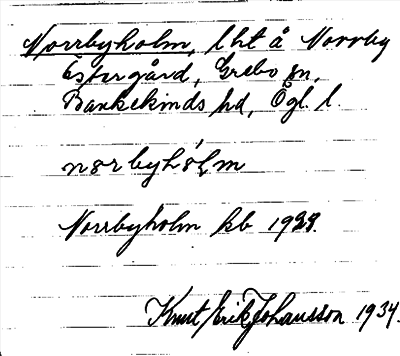 Norrbyholm, lht å Norrby
Östergård, Grebo sn,
Bankekinds hd, Ögl. l.
norbyhòlm
Norrbyholm kb 1928.
Knut Erik Johansson 1934.